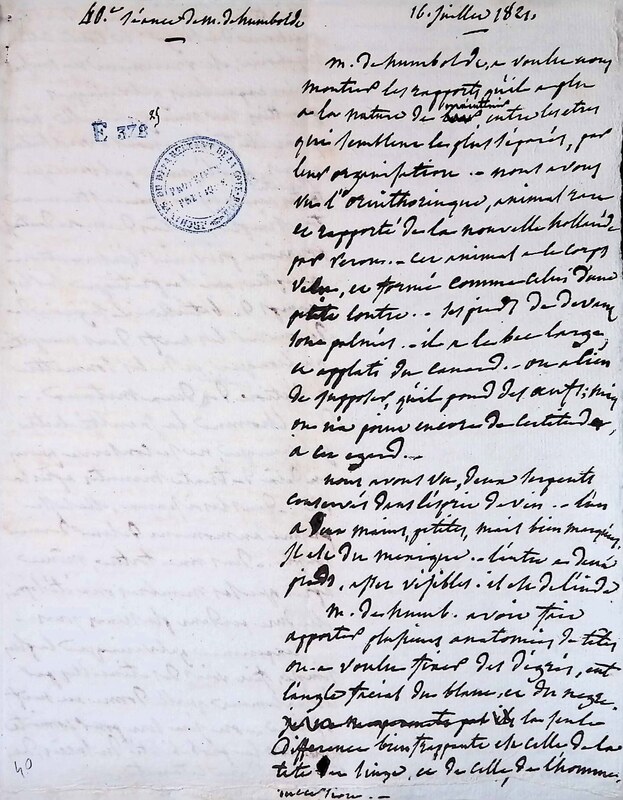 40.e séance de m. de humbolde
16. juillet 1821.
E 378 25
ARCHIVES DU DÉPARTEMENT DE LA
m. de humbolde, a voulu nous
montrer les rapports qu'il a plu
a la nature de maintenir entre les etres
qui semblent les plus séparés, par
leur organisation. - nous avons
vu l'ornithorinque, animal rare
et rapporté de la nouvelle hollande
par Perons. - cet animal a le corps
velu, et formé comme celui d'une
petite loutre. - ses pieds de devant
sont palmés. - il a le bec large,
et applati du canard. - on a lieu
de supposer, qu'il pond des œufs; mais
on n'a point encore de certitude,
a cet egard. -
nous avons vu, deux serpents
conservés dans l'esprit de vin. - l'un
a deux mains, petites, mais bien marquées,
il est du mexique. - l'autre a deux
pieds, assez visibles. il est de l'inde
m. de humb. avoit fait
apporter plusieurs anatomies de tetes
on a voulu tirer des dégrés, ent
l'angle facial du blanc, et du negre.
la seule
difference bien frappante est celle de la
tete du singe, et de celle, de l'homme.
40